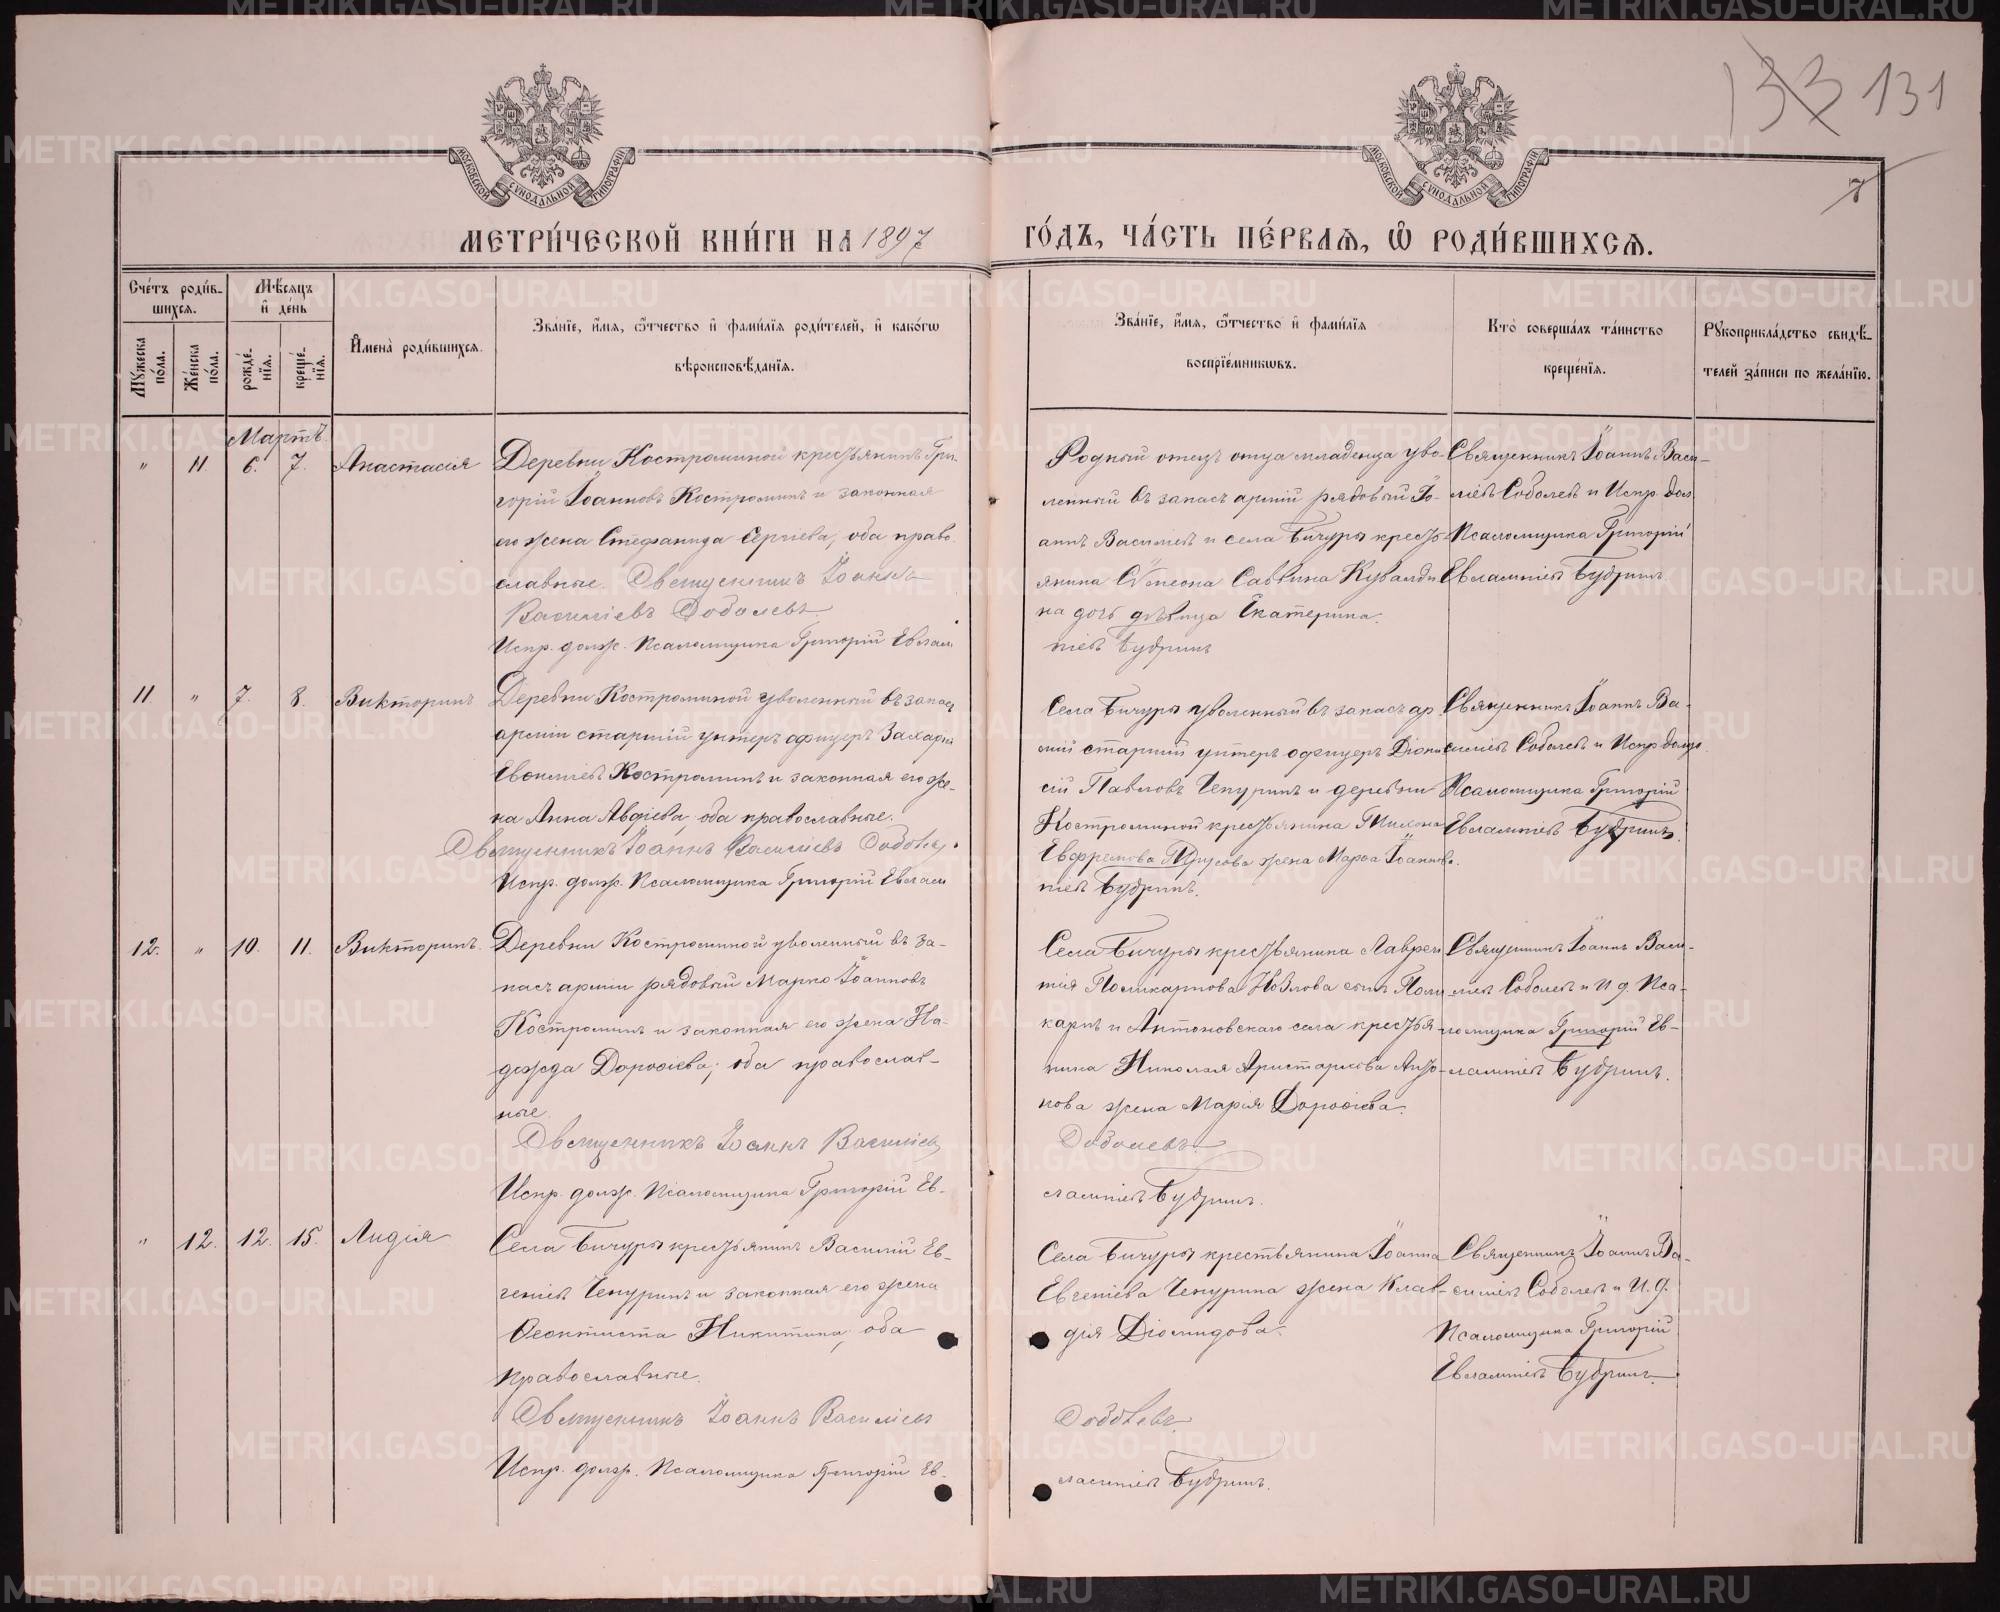 133 131
7
МОСКОВСКОЙ СѴНОДАЛЬНОЙ ТИПОГРАФІИ
МОСКОВСКОЙ СѴНОДАЛЬНОЙ ТИПОГРАФІИ
МЕТРИ́ЧЕСКОЙ КНИ́ГИ НА 1897 ГО́ДЪ, ЧА́СТЬ ПЕ́РВАѦ, Ѽ РОДИ́ВШИХСѦ.
Сче́тъ роди́в-
шихсѧ.
Мꙋ́жеска по́ла.
Же́нска по́ла.
Мѣ́сѧцъ
и҆ де́нь
рожде́-
нїѧ.
креще́-
нїѧ.
И҆мена̀ роди́вшихсѧ.
Зва́нїе, и҆́мѧ, ѻ҆́тчество и҆ фами́лїѧ роди́телей, и҆ како́гѡ
вѣроисповѣ́данїѧ.
Зва́нїе, и҆́мѧ, ѻ҆́тчество и҆ фами́лїѧ
воспрїе́мникѡвъ.
Кто̀ соверша́лъ та́инство
креще́нїѧ.
Рꙋкоприкла́дство свидѣ́-
телей за́писи по жела́нїю.
Мартъ.
" 11 6. 7. Анастасія
Деревни Костроминой крестьянинъ Гри-
горій Іоанновъ Костроминъ и законная
его жена Стефанида Сергіева, оба право-
славные. Священникъ Іоаннъ
Василіевъ Соболевъ
Испр. долж. Псаломщика Григорій Евлам
Родный отецъ отца младенца уво-
ленный въ запасъ арміи рядовый Іо-
аннъ Василіевъ и села Бичуры кресть-
янина Сѵмеона Саввина Кувалди
на дочь дѣвица Екатерина.
піевъ Бубринъ
Священникъ Іоаннъ Васи-
ліевъ Соболевъ и Испр. дол
Псаломщика Григорій
Евлампіевъ Бубринъ
11 " 7. 8. Викторинъ
Деревни Костроминой уволенный въ запасъ
арміи старшій унтеръ офицеръ Захарія
Костроминъ и законная его же-
на Анна Авдіева, оба православные.
Священникъ Іоаннъ Василіевъ Соболевъ
Испр. долж. Псаломщика Григорій Евлам
Села Бичуры уволенный въ запасъ ар-
міи старшій унтеръ офицеръ Діони
сій Павловъ Чепуринъ и деревни
Костроминой крестьянина
Евфремова жена Марѳа Іоаннова.
піевъ Бубринъ.
Священникъ Іоаннъ Ва-
силіевъ Соболевъ и Испр. долж.
Псаломщика Григорій
Евлампіевъ Бубринъ.
12. " 10. 11. Викторинъ.
Деревни Костроминой уволенный въ за-
пасъ арміи рядовый Марко Іоанновъ
Костроминъ и законная его жена На-
дежда Дороѳіева; оба православ-
ные.
Священникъ Іоаннъ Василіевъ
Испр. долж. Псаломщика Григорій Ев-
Села Бичуры крестьянина Лаврен
тія Поликарпова Козлова сынъ Поли
карпъ и Антоновскаго села крестья-
нина Николая Аристархова
нова жена Марія Дороѳіева.
Соболевъ
лампіевъ Бубринъ.
Священникъ Іоаннъ Васи-
ліевъ Соболевъ и И. д. Пса-
ломщика Григорій Ев-
лампіевъ Бубринъ.
" 12. 12. 15. Лидія
Села Бичуры крестьянинъ Василій Ев-
геніевъ Чепуринъ и законная его жена
Ѳеоктиста Никитина, оба
православные.
Священникъ Іоаннъ Василіевъ
Испр. долж. Псаломщика Григорій Ев-
Села Бичуры крестьянина Іоанна
Евгеніева Чепурина жена Клав-
дія Діомидова.
Соболевъ
лампіевъ Бубринъ.
Священникъ Іоаннъ Ва-
силіевъ Соболевъ и И. д.
Псаломщика Григорій
Евлампіевъ Бубринъ.
METRIKI.GASO-URAL.RU